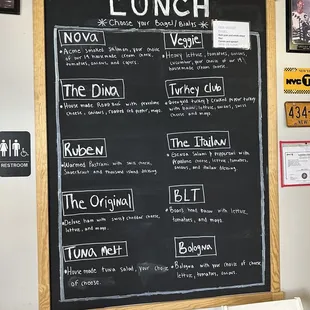 LUNCH
*Choose your Bagel/Bialys*
Nova
Acme smoked salmon, your choice
of our 19 homemade cream cheese,
tomatoes, onions, and capers.
Veggie
Heavy lettuce, tomatoes, onions,
cucumber, your choice of our 19
housemade cream cheese.
The Dina
House made Roast Beef with provolone
cheese, onions, roasted red pepper, mayo.
Turkey Club
Ovengold turkey & cracked pepper turkey
with bacon, lettuce, onions, swiss
cheese and mayo.
Ruben
Warmed Pastrami with swiss cheese,
Sauerkraut and thousand island dressing.
The Italian
Genoa Salami & Pepperoni with
Provolone cheese, lettuce, tomatoes,
onions, and italian dressing.
The Original
Deluxe ham with cheddar cheese,
lettuce, and mayo.
BLT
Boars head bacon with lettuce,
tomatoes, and mayo.
Tuna Melt
House made tuna salad, your choice
of cheese.
Bologna
Bologna with your choice of cheese,
lettuce, tomatoes, onions.
RESTROOM
NYC TAXI
434